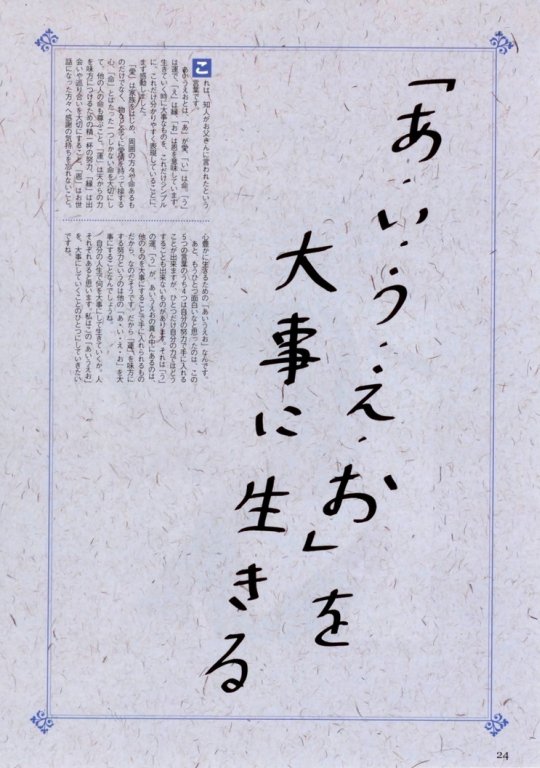 「あ・い・う・え・お」を
大事に生きる
これは、知人がお父さんに言われたという
言葉です。
あいうえおとは、「あ」が愛、「い」は命、「う」
は運で、「え」は縁、「お」は恩を意味しています。
生きていく時に大事なものを、これだけシンプル
に、これだけ分かりやすく表現していることに、
まず感動しました。
「愛」は家族をはじめ、周囲の方々や命あるも
のだけでなく、物や全てに愛情を持って接する
心、「命」とはたった一つしかない命を大切にし
て、他の人の命も尊ぶこと。「運」は天からの力
を味方につけるための精一杯の努力、「縁」は出
会いや巡り合いを大切にすること、「恩」はお世
話になった方々へ感謝の気持ちを忘れないこと。
心豊かに生きるための「あいうえお」なんです。
あと、もうひとつ面白いなと思ったのは、この
5つの言葉のうち4つは自分の努力で手に入れる
ことが出来ますが、ひとつだけ自分の力ではどう
することも出来ないものがあります。それは「う」
の運、「う」が、あいうえおの真ん中にあるのは、
他のものを大事にすることで手に入れられるもの
だから、なのだそうです。だから「運」を味方に
する努力というのは他の「あ・い・え・お」を大
事にすることなんでしょうね。
自分の人生で何を大事にして生きていくか。人
それぞれあると思います。私はこの「あいうえお」
を、大事にしていくことのひとつにしていきたい
ですね。
24